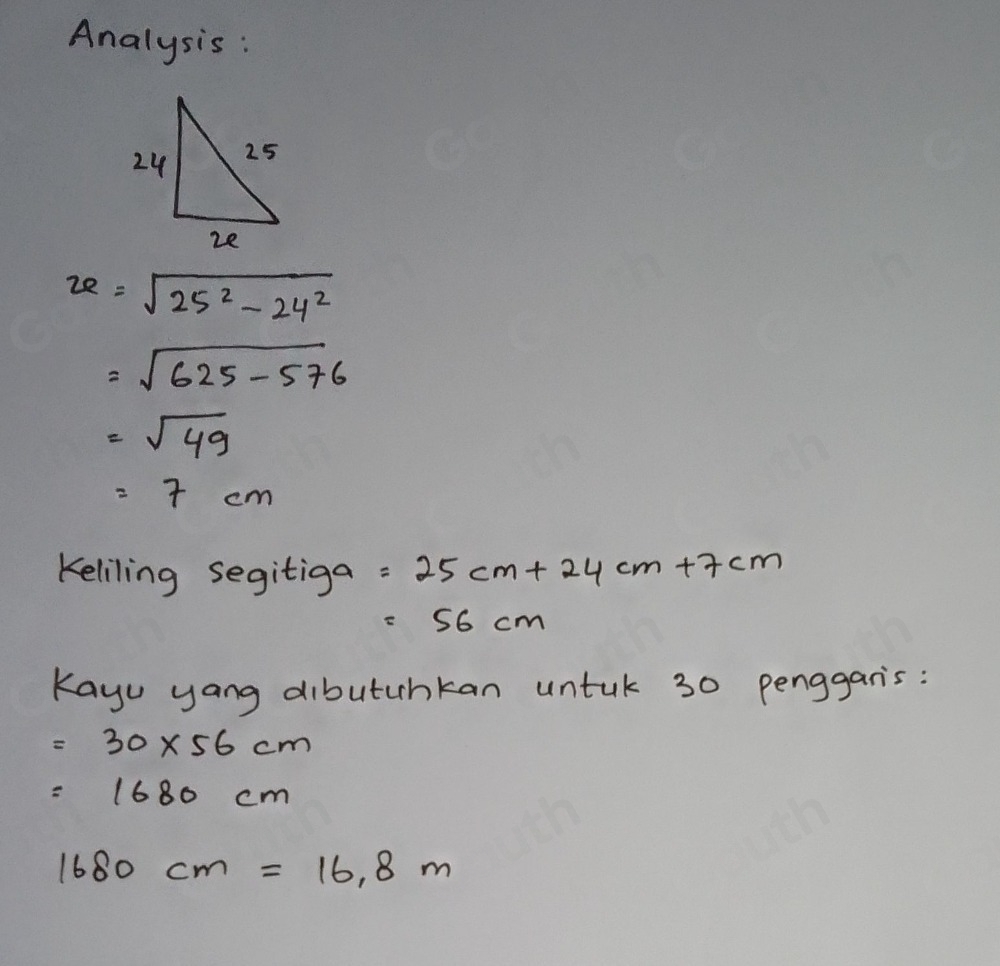 Analysis :
24
25
x
x = √25² - 24²
= √625 - 576
= √49
= 7 cm
Keliling segitiga = 25 cm + 24 cm + 7 cm
= 56 cm
Kayu yang dibutuhkan untuk 30 penggaris :
= 30 × 56 cm
= 1680 cm
1680 cm = 16,8 m